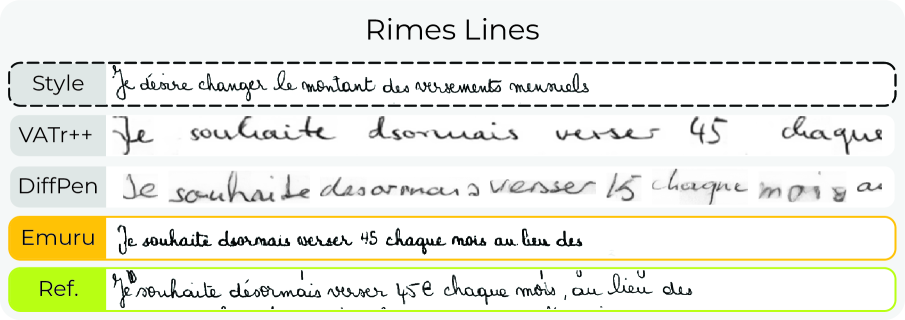 Rimes Lines
Style Je désire changer le montant des versements mensuels
VATr++ Je souhaite dsormais verser 45 chaque
DiffPen Je souhaite desormais versser 15 chaque mois au
Emuru Je souhaite dsormais verser 45 chaque mois au lieu des
Ref. Je souhaite désormais verser 45€ chaque mois, au lieu des